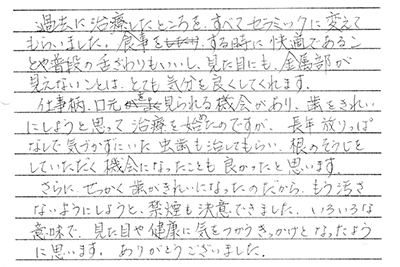 過去に治療したところを、すべてセラミックに変えて
もらいました。食事をする時に快適であるこ
とや普段の舌ざわりもいいし、見た目にも、金属部が
見えないことは、とても気分を良くしてくれます。
仕事柄、口元を見られる機会があり、歯をきれい
にしようと思って治療を始めたのですが、長年放りっぱ
なしで気づかずにいた虫歯も治してもらい、根のそうじを
していただく機会になったことも良かったと思います。
さらに、せっかく歯がきれいになったのだから、もう汚さ
ないようにしようと、禁煙も決意できました。いろいろな
意味で、見た目や健康に気をつかうきっかけとなったよう
に思います。ありがとうございました。